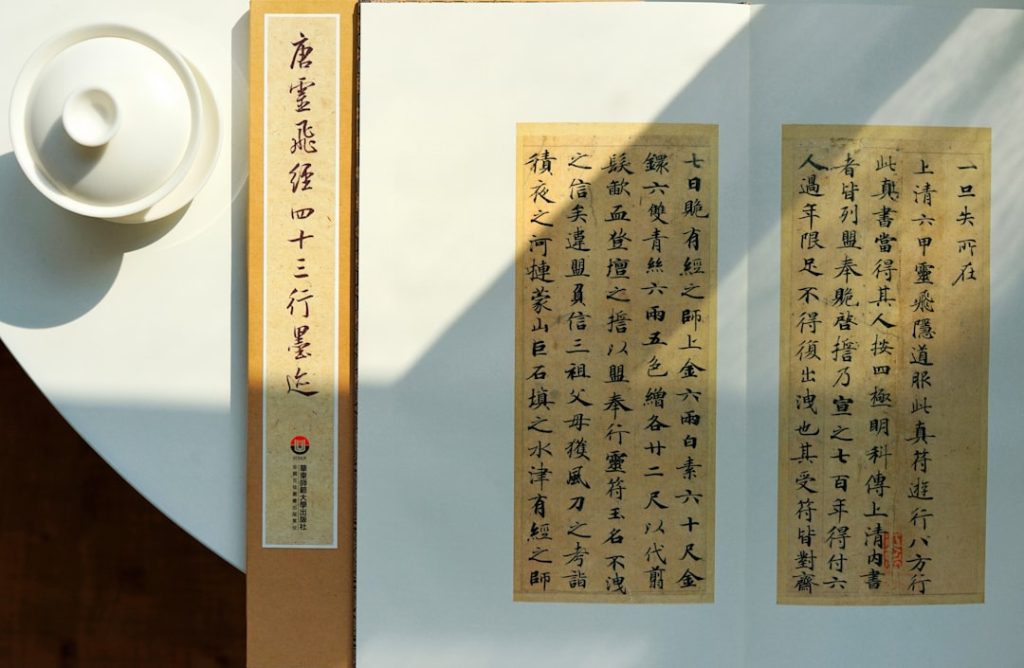 唐靈飛經四十三行墨迹
華東師範大學出版社
一旦失所在
上清六甲靈飛隱道服此真符遊行八方行
此真書當得其人按四極明科傳上清內書
者皆列盟奉貤啓擔乃宣之七百年得付六
人過年限足不得復出洩也其受符皆對齋
七日貤有經之師上金六兩白素六十尺金
鐶六雙青絲六兩五色繒各廿二尺以代翦
髮歃血登壇之擔以盟奉行靈符玉名不洩
之信矣違盟負信三祖父母獲風刀之考詣
積夜之河揵蒙山巨石填之水津有經之師